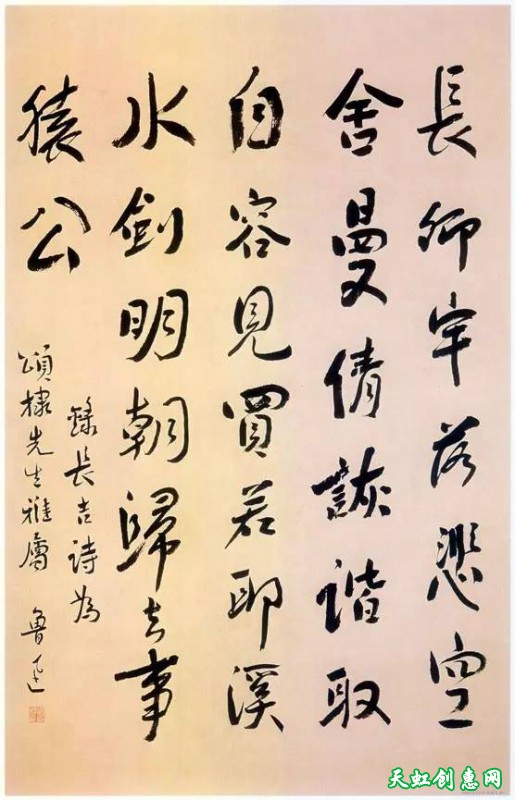 長卿牢落悲空
舍曼倩詼諧取
自容見買若耶溪
水劍明朝歸去事
猿公
錄長吉詩為
頌棣先生雅屬
魯迅
天虹创惠网